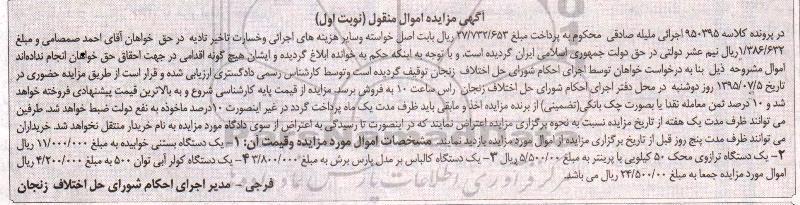 آگهی مزایده اموال منقول (نوبت اول)
در پرونده کلاسه ۹۵۰۳۹۵ اجرائی ملیله صادقی محکوم به پرداخت مبلغ ۲۷/۷۳۲/۶۵۳ ریال بابت اصل خواسته وسایر هزینه های اجرائی وخسارت تاخیر تادیه در حق خواهان آقای احمد صمصامی و مبلغ
۱/۳۸۶/۶۳۲ ریال نیم عشر دولتی در حق دولت جمهوری اسلامی ایران گردیده است. و با توجه به اینکه حکم به خوانده ابلاغ گردیده و ایشان هیچ گونه اقدامی در جهت احقاق حق خواهان انجام نداده‌اند
اموال مشروحه ذیل بنا به درخواست خواهان توسط اجرای احکام شورای حل اختلاف زنجان توقیف گردیده است وتوسط کارشناس رسمی دادگستری ارزیابی شده و قرار است از طریق مزایده حضوری در
تاریخ ۱۳۹۵/۰۷/۵ روز دوشنبه در محل دفتر اجرای احکام شورای حل اختلاف زنجان راس ساعت ۱۰ به فروش برسد مزایده از قیمت پایه کارشناسی شروع و به بالاترین قیمت پیشنهادی فروخته خواهد
شد و ۱۰ درصد ثمن معامله نقدا یا بصورت چک بانکی(تضمینی) از برنده مزایده اخذ و مابقی باید ظرف مدت یک ماه پرداخت گردد در غیر اینصورت ۱۰ درصد ماخوذه به نفع دولت ضبط خواهد شد. طرفین
می توانند ظرف مدت یک هفته از تاریخ مزایده نسبت به نحوه برگزاری مزایده اعتراض نمایند که در اینصورت تا رسیدگی به اعتراض از سوی دادگاه مورد مزایده به نام خریدار منتقل نخواهد شد. خریداران
می توانند ظرف مدت پنج روز قبل از تاریخ برگزاری مزایده از اموال مورد مزایده بازدید نمایند. مشخصات اموال مورد مزایده وقیمت آن: ۱- یک دستگاه بستنی خوابیده به مبلغ ۱۱/۰۰۰/۰۰۰ ریال
۲- یک دستگاه ترازوی محک ۵۰ کیلویی با پرینتر به مبلغ ۵/۵۰۰/۰۰ ریال ۳- یک دستگاه کالباس بر مدل پارس برش به مبلغ ۳/۸۰۰/۰۰۰ ۴- یک دستگاه کولر آبی توان ۵۰۰ به مبلغ ۴/۲۰۰/۰۰۰ ریال
اموال مورد مزایده جمعا به مبلغ ۲۴/۵۰۰/۰۰ ریال می باشد. فرجی - مدیر اجرای احکام شورای حل اختلاف زنجان